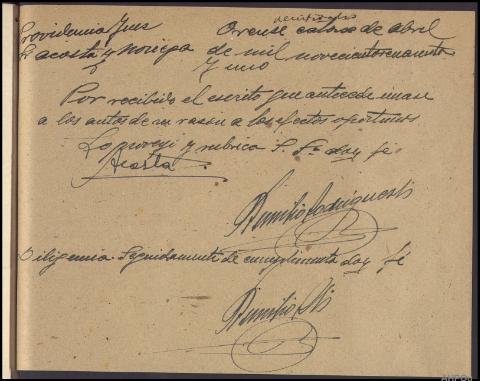 veintiseis
Providencia Juez Orense catorce de Abril
Sr Acosta y Noriega de mil novecientos cuarenta
y uno
Por recibido el escrito que antecede unase
a los autos de su razón a los efectos oportunos
Lo proveyó y rubrica S. Sª doy fé
Acosta
Diligencia. Seguidamente se cumplimenta doy fé